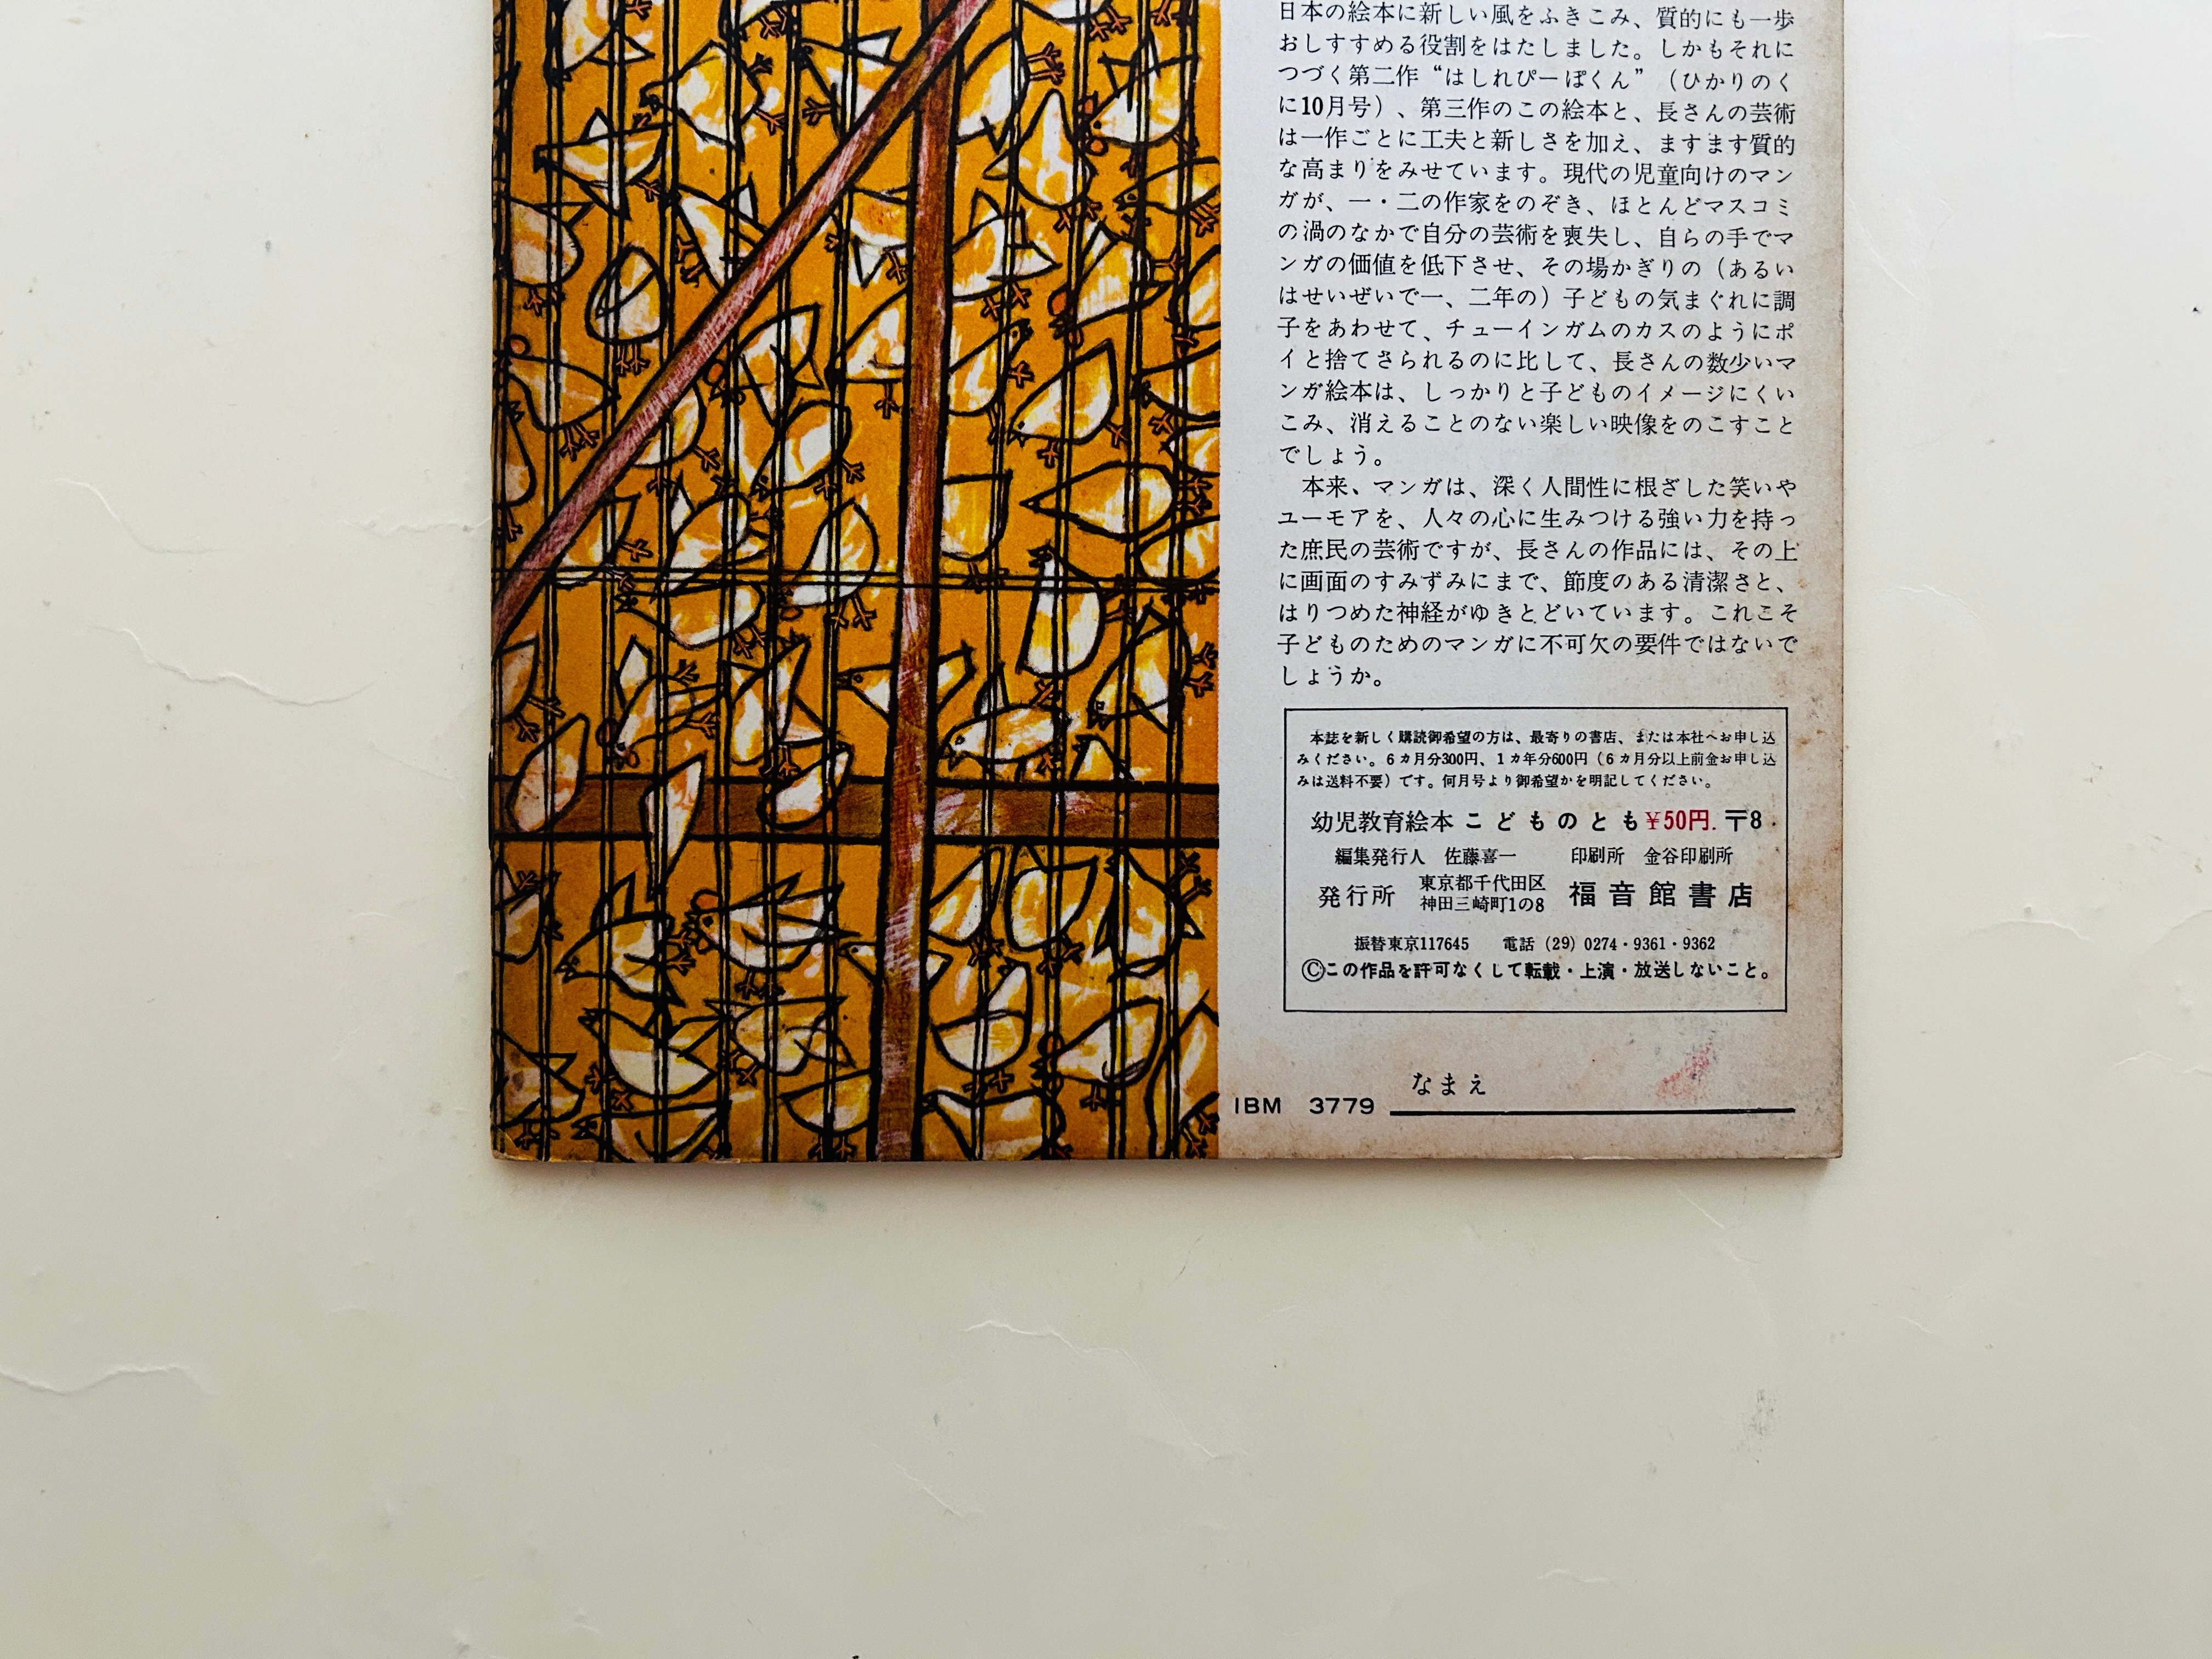 日本の絵本に新しい風をふきこみ、質的にも一歩
おしすすめる役割をはたしました。しかもそれに
つづく第二作“はしれぴーぽくん”（ひかりのく
に10月号）、第三作のこの絵本と、長さんの芸術
は一作ごとに工夫と新しさを加え、ますます質的
な高まりをみせています。現代の児童向けのマン
ガが、一・二の作家をのぞき、ほとんどマスコミ
の渦のなかで自分の芸術を喪失し、自らの手でマ
ンガの価値を低下させ、その場かぎりの（あるい
はせいぜいで一、二年の）子どもの気まぐれに調
子をあわせて、チューインガムのカスのようにポ
イと捨てさられるのに比して、長さんの数少いマ
ンガ絵本は、しっかりと子どものイメージにくい
こみ、消えることのない楽しい映像をのこすこと
でしょう。
本来、マンガは、深く人間性に根ざした笑いや
ユーモアを、人々の心に生みつける強い力を持っ
た庶民の芸術ですが、長さんの作品には、その上
に画面のすみずみにまで、節度のある清潔さと、
はりつめた神経がゆきとどいています。これこそ
子どものためのマンガに不可欠の要件ではないで
しょうか。
本誌を新しく購読御希望の方は、最寄りの書店、または本社へお申し込
みください。6カ月分300円、1カ年分600円（6カ月分以上前金お申し込
みは送料不要）です。何月号より御希望かを明記してください。
幼児教育絵本 こどものとも ¥50円. 〒8.
編集発行人 佐藤喜一 印刷所 金谷印刷所
発行所 東京都千代田区 神田三崎町1の8 福音館書店
振替東京117645 電話（29）0274・9361・9362
Ⓒこの作品を許可なくして転載・上演・放送しないこと。
なまえ
IBM 3779